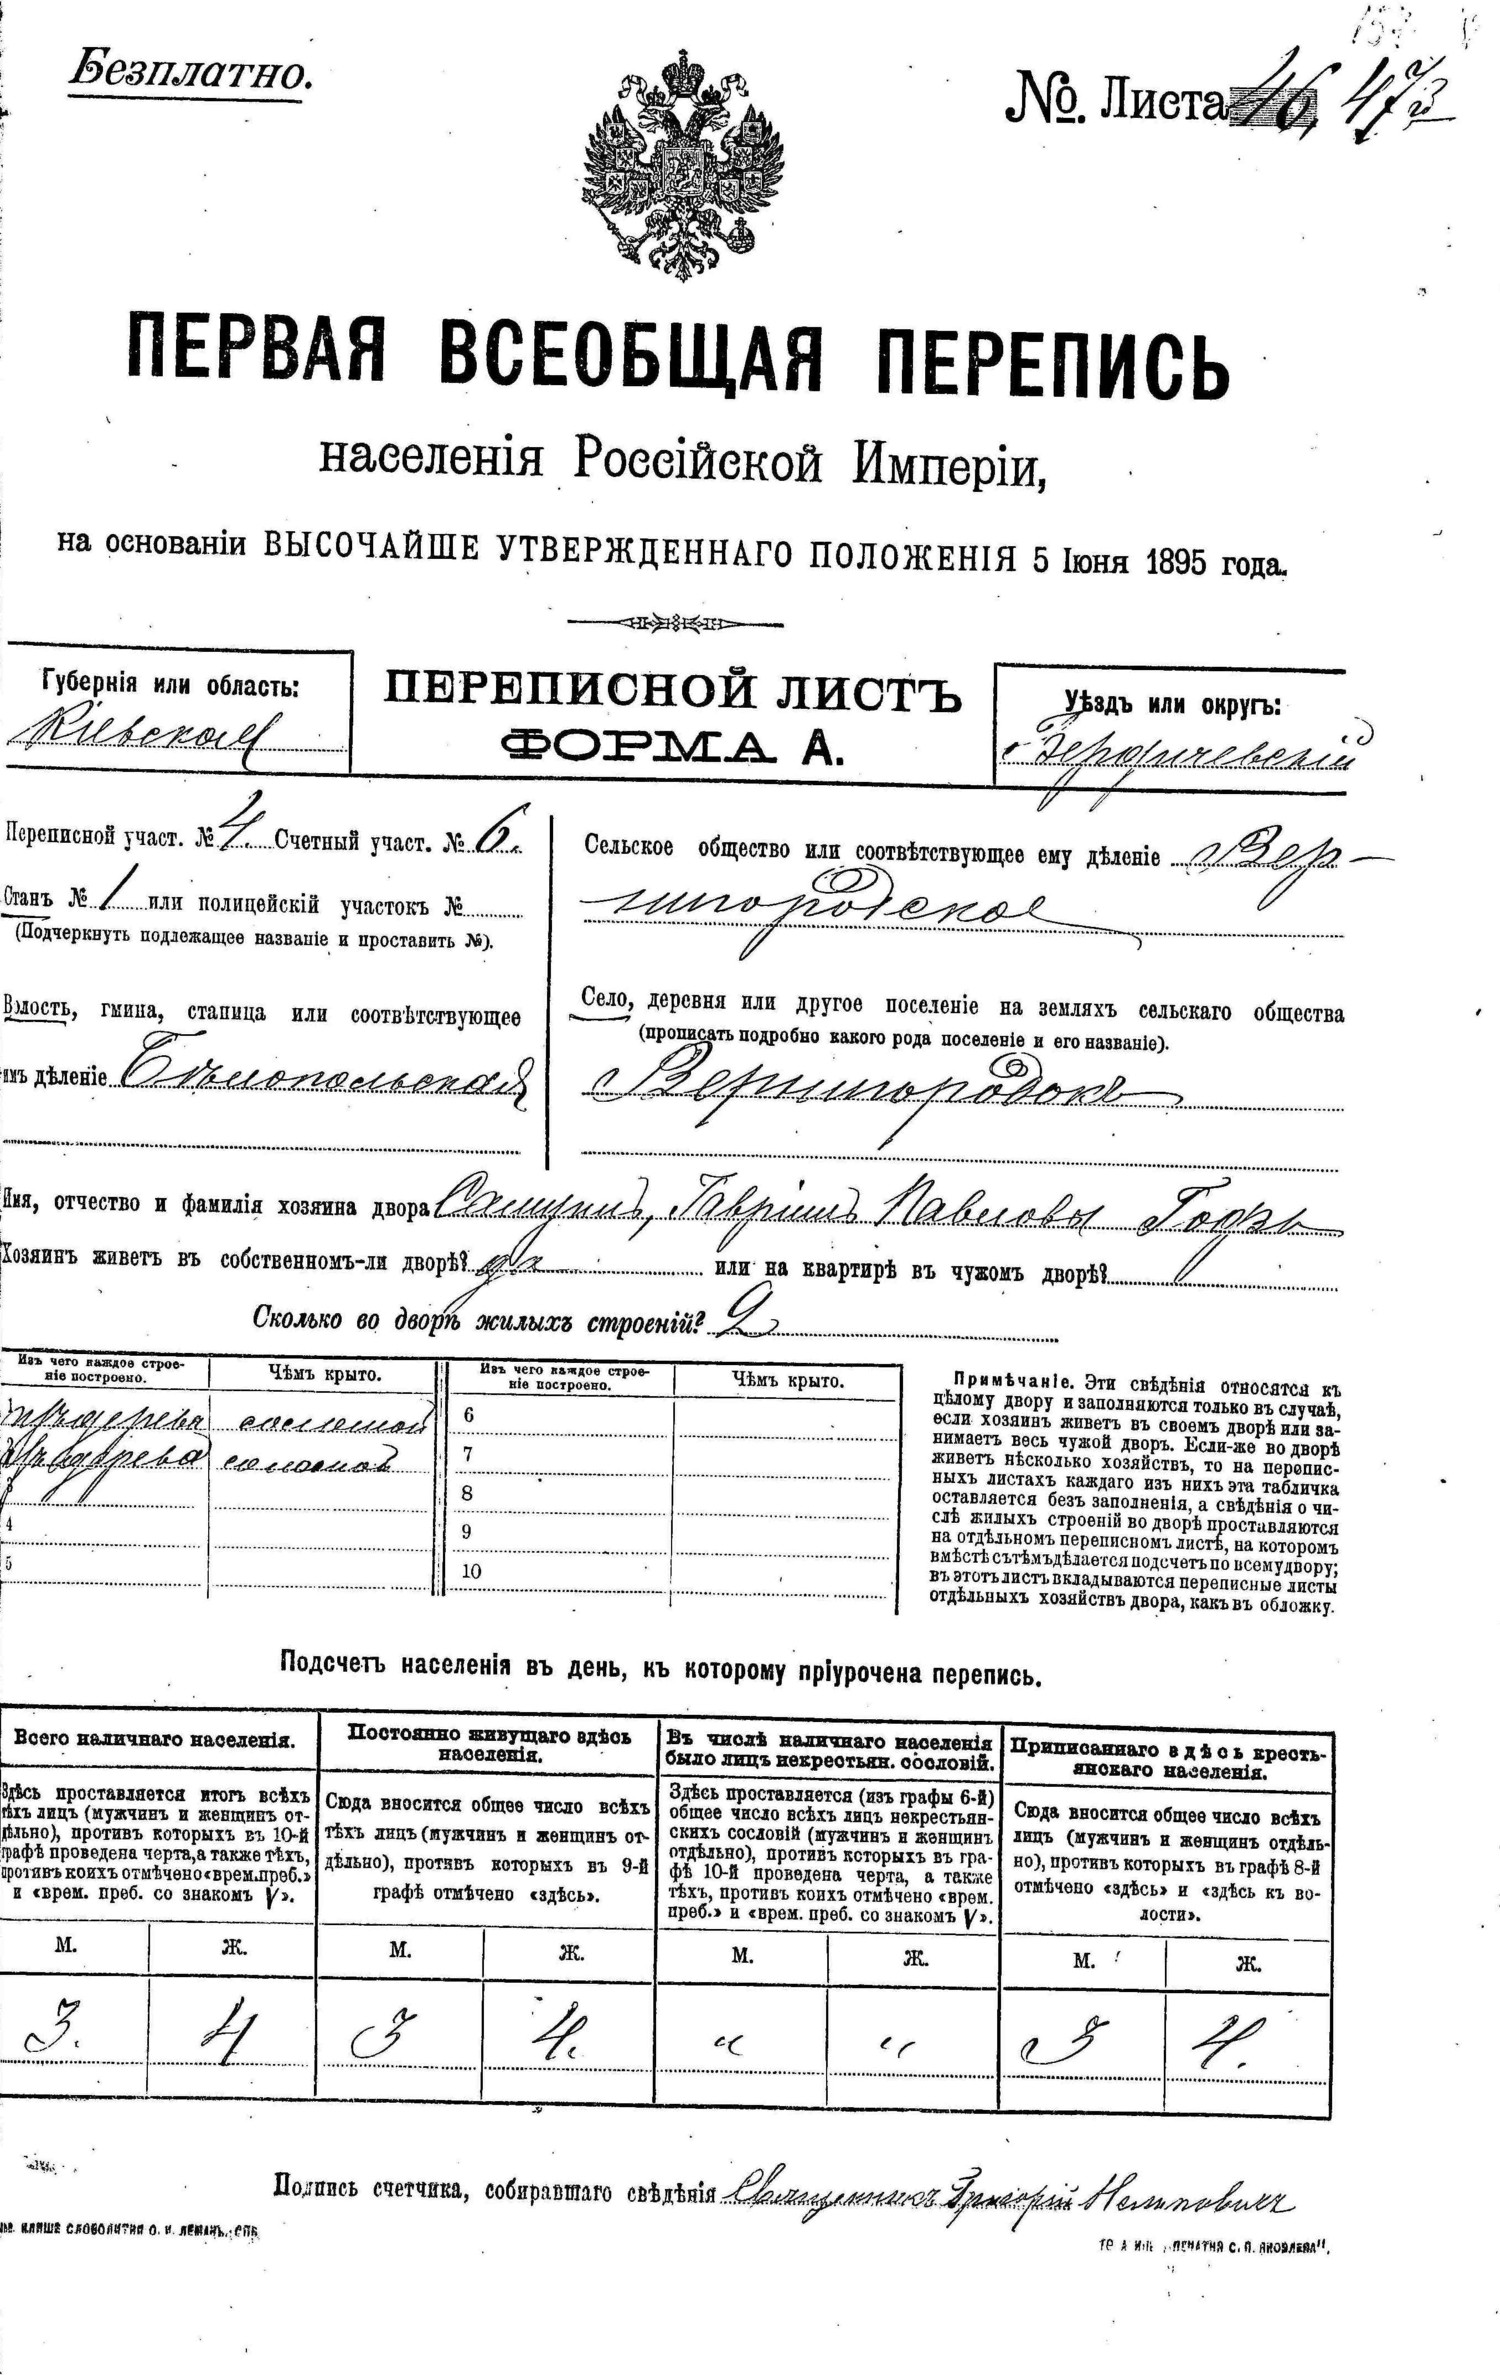 Безплатно.
№. Листа 46, 473
ПЕРВАЯ ВСЕОБЩАЯ ПЕРЕПИСЬ
населенія Россійской Имперіи,
на основаніи ВЫСОЧАЙШЕ УТВЕРЖДЕННАГО ПОЛОЖЕНІЯ 5 Іюня 1895 года.
Губернія или область:
Кіевская
ПЕРЕПИСНОЙ ЛИСТЪ
ФОРМА А.
Уѣздъ или округъ:
Бердичевскій
Переписной участ. № 4. Счетный участ. № 6.
Станъ № 1 или полицейскій участокъ №
(Подчеркнуть подлежащее названіе и проставить №).
Волость, гмина, станица или соотвѣтствующее
имъ дѣленіе Бѣлопольская
Сельское общество или соотвѣтствующее ему дѣленіе Вер-
нигородское
Село, деревня или другое поселеніе на земляхъ сельскаго общества
(прописать подробно какого рода поселеніе и его названіе).
Вернигородокъ
Имя, отчество и фамилія хозяина двора Самуилъ, Гавріилъ Павловы
Хозяинъ живетъ въ собственномъ-ли дворѣ? да или на квартирѣ въ чужомъ дворѣ?
Сколько во дворѣ жилыхъ строеній? 2
Изъ чего каждое строе-
ніе построено.
Чѣмъ крыто.
Изъ чего каждое строе-
ніе построено.
Чѣмъ крыто.
изъ дерева соломой 6
изъ дерева соломой 7
3 8
4 9
5 10
Примѣчаніе. Эти свѣдѣнія относятся къ
цѣлому двору и заполняются только въ случаѣ,
если хозяинъ живетъ въ своемъ дворѣ или за-
нимаетъ весь чужой дворъ. Если-же во дворѣ
живетъ нѣсколько хозяйствъ, то на перепис-
ныхъ листахъ каждаго изъ нихъ эта табличка
оставляется безъ заполненія, а свѣдѣнія о чи-
слѣ жилыхъ строеній во дворѣ проставляются
на отдѣльномъ переписномъ листѣ, на которомъ
вмѣстѣ съ тѣмъ дѣлается подсчетъ по всему двору;
въ этотъ листъ вкладываются переписные листы
отдѣльныхъ хозяйствъ двора, какъ въ обложку.
Подсчетъ населенія въ день, къ которому пріурочена перепись.
Всего наличнаго населенія.
Здѣсь проставляется итогъ всѣхъ
тѣхъ лицъ (мужчинъ и женщинъ от-
дѣльно), противъ которыхъ въ 10-й
графѣ проведена черта, а также тѣхъ,
противъ коихъ отмѣчено «врем. преб.»
и «врем. преб. со знакомъ V».
Постоянно живущаго здѣсь
населенія.
Сюда вносится общее число всѣхъ
тѣхъ лицъ (мужчинъ и женщинъ от-
дѣльно), противъ которыхъ въ 9-й
графѣ отмѣчено «здѣсь».
Въ числѣ наличнаго населенія
было лицъ некрестьян. сословій.
Здѣсь проставляется (изъ графы 6-й)
общее число всѣхъ лицъ некрестьян-
скихъ сословій (мужчинъ и женщинъ
отдѣльно), противъ которыхъ въ гра-
фѣ 10-й проведена черта, а также
тѣхъ, противъ коихъ отмѣчено «врем.
преб.» и «врем. преб. со знакомъ V».
Приписаннаго здѣсь кресть-
янскаго населенія.
Сюда вносится общее число всѣхъ
лицъ (мужчинъ и женщинъ отдѣль-
но), противъ которыхъ въ графѣ 8-й
отмѣчено «здѣсь» и «здѣсь къ во-
лости».
М. Ж. М. Ж. М. Ж. М. Ж.
3. 4 3 4. " " 3 4.
Подпись счетчика, собиравшаго свѣдѣнія Священникъ Григорій
КЛИШЕ СЛОВОЛИТНИ О. И. ЛЕМАНЪ, СПБ.
С. П. ЯКОВЛЕВА".